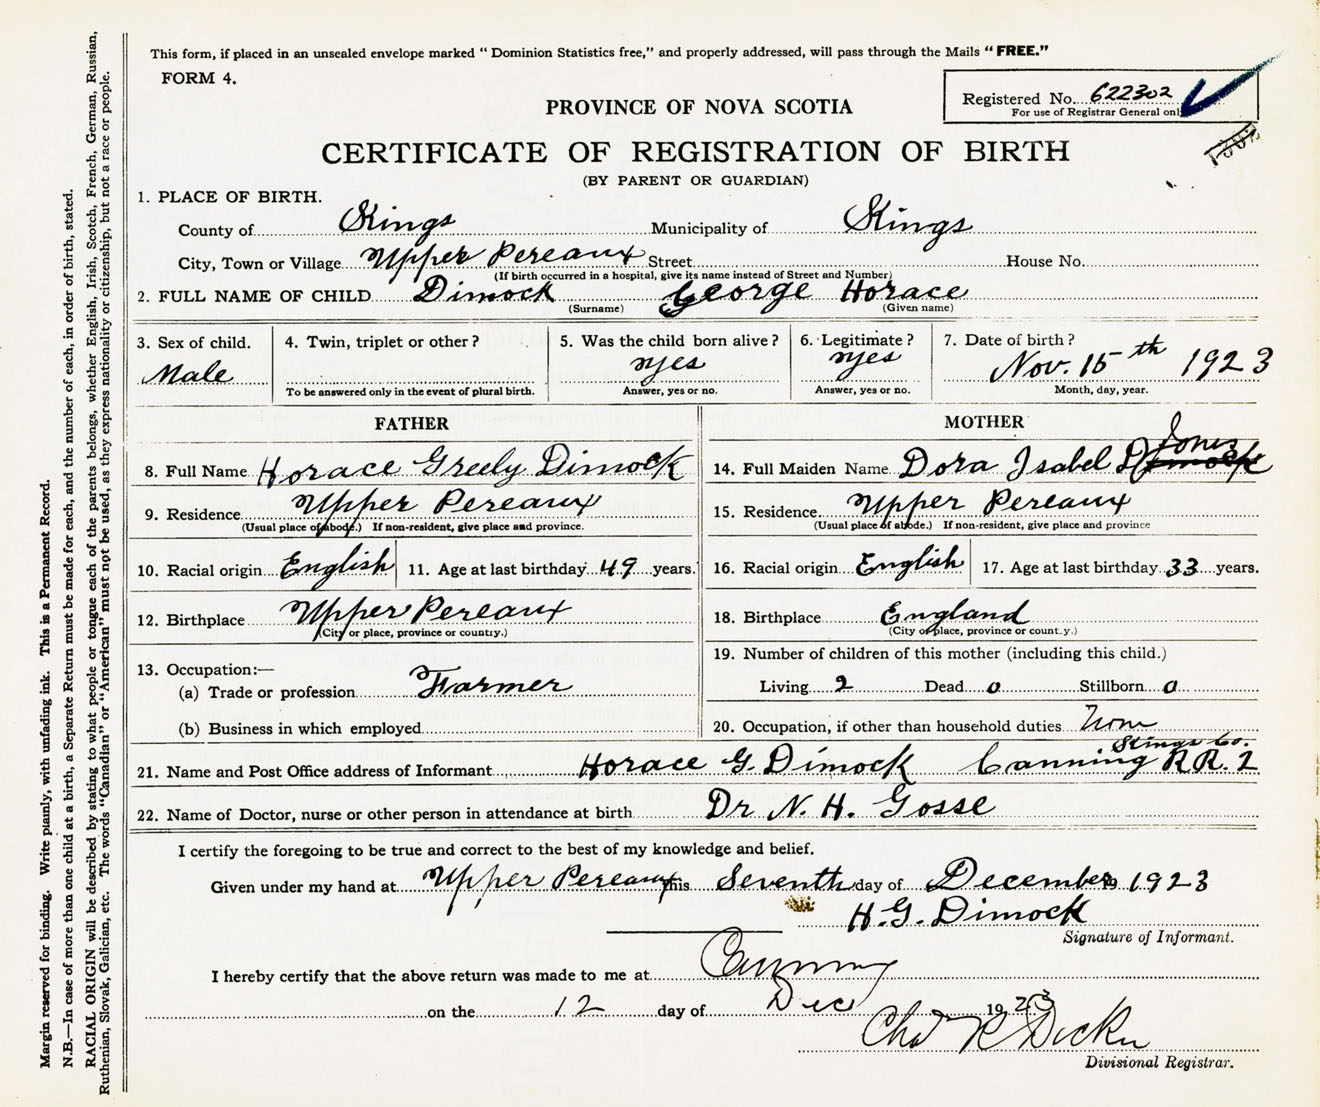 This form, if placed in an unsealed envelope marked “ Dominion Statistics free,” and properly addressed, will pass through the Mails “ FREE.”
FORM 4.
Registered No. 622302
For use of Registrar General only
PROVINCE OF NOVA SCOTIA
CERTIFICATE OF REGISTRATION OF BIRTH
(BY PARENT OR GUARDIAN)
1. PLACE OF BIRTH.
County of Kings Municipality of Kings
City, Town or Village Upper Pereaux Street House No.
(If birth occurred in a hospital, give its name instead of Street and Number)
2. FULL NAME OF CHILD Dimock George Horace
(Surname) (Given name)
3. Sex of child. 4. Twin, triplet or other? 5. Was the child born alive? 6. Legitimate? 7. Date of birth?
Male yes yes Nov. 15th 1923
To be answered only in the event of plural birth. Answer, yes or no. Answer, yes or no. Month, day, year.
FATHER
8. Full Name Horace Greely Dimock
9. Residence Upper Pereaux
(Usual place of abode.) If non-resident, give place and province.
10. Racial origin English 11. Age at last birthday 49 years.
12. Birthplace Upper Pereaux
(City or place, province or country.)
13. Occupation:—
(a) Trade or profession Farmer
(b) Business in which employed
MOTHER
14. Full Maiden Name Dora Isabel Dimock Jones
15. Residence. Upper Pereaux
(Usual place of abode.) If non-resident, give place and province
16. Racial origin English 17. Age at last birthday 33 years.
18. Birthplace England
(City or place, province or country.)
19. Number of children of this mother (including this child.)
Living 2 Dead 0 Stillborn 0
20. Occupation, if other than household duties
Kings Co.
21. Name and Post Office address of Informant Horace G. Dimock Canning R.R. 2
22. Name of Doctor, nurse or other person in attendance at birth Dr N. H. Gosse
I certify the foregoing to be true and correct to the best of my knowledge and belief.
Given under my hand at Upper Pereaux this Seventh day of December 1923
H. G. Dimock
Signature of Informant.
I hereby certify that the above return was made to me at Canning
on the 12 day of Dec 1923
Divisional Registrar.
Margin reserved for binding. Write plainly, with unfading ink. This is a Permanent Record.
N.B.—In case of more than one child at a birth, a Separate Return must be made for each, and the number of each, in order of birth, stated.
RACIAL ORIGIN will be described by stating to what people or tongue each of the parents belongs, whether English, Irish, Scotch, French, German, Russian,
Ruthenian, Slovak, Galician, etc. The words “Canadian” or “American” must not be used, as they express nationality or citizenship, but not a race or people.